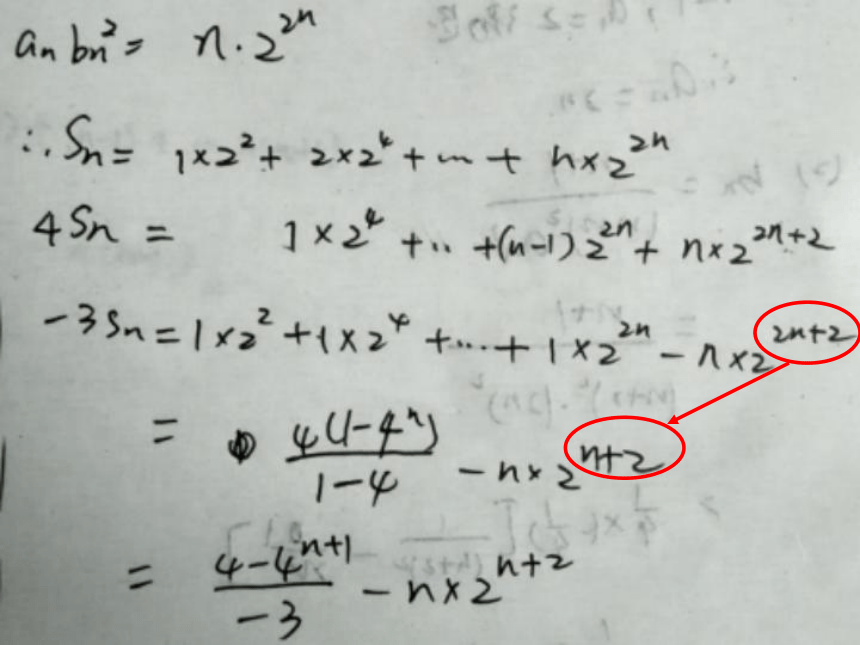 aₙbₙ² = n·2²ⁿ
∴ Sₙ = 1×2² + 2×2⁴ + … + n×2²ⁿ
4Sₙ = 1×2⁴ + ‥ + (n-1)2²ⁿ + n×2²ⁿ⁺²
-3Sₙ = 1×2² + 1×2⁴ + … + 1×2²ⁿ - n×2²ⁿ⁺²
= 4(1-4ⁿ)/(1-4) - n×2ⁿ⁺²
= (4-4ⁿ⁺¹)/(-3) - n×2ⁿ⁺²